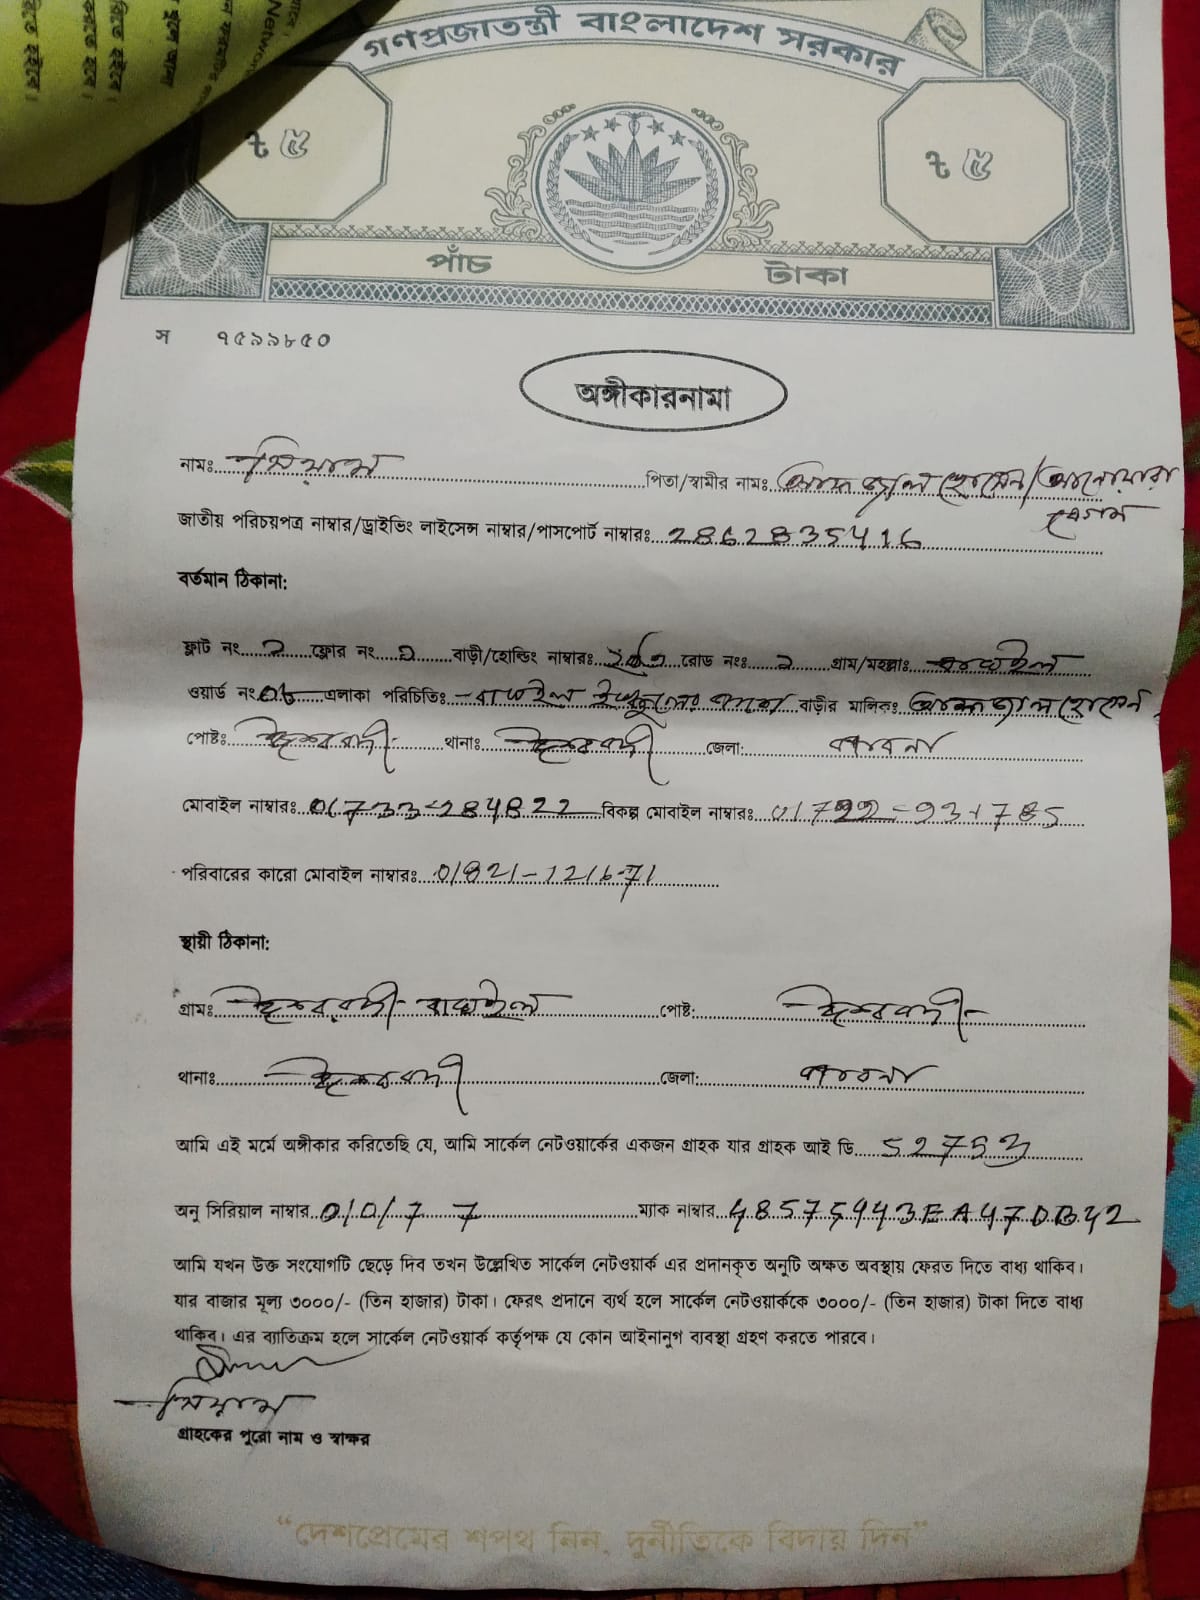 গণপ্রজাতন্ত্রী বাংলাদেশ সরকার
৳ ৫
৳ ৫
পাঁচ টাকা
স ৭৫৯৯৮৫০
অঙ্গীকারনামা
নামঃ সিয়াম পিতা/স্বামীর নামঃ আফজাল হোসেন/আনোয়ারা বেগম
জাতীয় পরিচয়পত্র নাম্বার/ড্রাইভিং লাইসেন্স নাম্বার/পাসপোর্ট নাম্বারঃ 2862835416
বর্তমান ঠিকানা:
ফ্লাট নং ফ্লোর নং বাড়ী/হোল্ডিং নাম্বারঃ রোড নংঃ গ্রাম/মহল্লাঃ
ওয়ার্ড নং এলাকা পরিচিতিঃ বাড়ীর মালিকঃ আফজাল হোসেন
পোষ্টঃ ঈশ্বরদী থানাঃ ঈশ্বরদী জেলা: পাবনা
মোবাইল নাম্বারঃ 01733-284822 বিকল্প মোবাইল নাম্বারঃ
পরিবারের কারো মোবাইল নাম্বারঃ 01821-121671
স্থায়ী ঠিকানা:
গ্রামঃ ঈশ্বরদী পোষ্ট: ঈশ্বরদী
থানাঃ ঈশ্বরদী জেলা: পাবনা
আমি এই মর্মে অঙ্গীকার করিতেছি যে, আমি সার্কেল নেটওয়ার্কের একজন গ্রাহক যার গ্রাহক আই ডি 52753
অনু সিরিয়াল নাম্বার 0/0/77 ম্যাক নাম্বার 48575443EA47DB42
আমি যখন উক্ত সংযোগটি ছেড়ে দিব তখন উল্লেখিত সার্কেল নেটওয়ার্ক এর প্রদানকৃত অনুটি অক্ষত অবস্থায় ফেরত দিতে বাধ্য থাকিব।
যার বাজার মূল্য ৩০০০/- (তিন হাজার) টাকা। ফেরৎ প্রদানে ব্যর্থ হলে সার্কেল নেটওয়ার্ককে ৩০০০/- (তিন হাজার) টাকা দিতে বাধ্য
থাকিব। এর ব্যাতিক্রম হলে সার্কেল নেটওয়ার্ক কর্তৃপক্ষ যে কোন আইনানুগ ব্যবস্থা গ্রহণ করতে পারবে।
সিয়াম
গ্রাহকের পুরো নাম ও স্বাক্ষর
“দেশপ্রেমের শপথ নিন, দুর্নীতিকে বিদায় দিন”